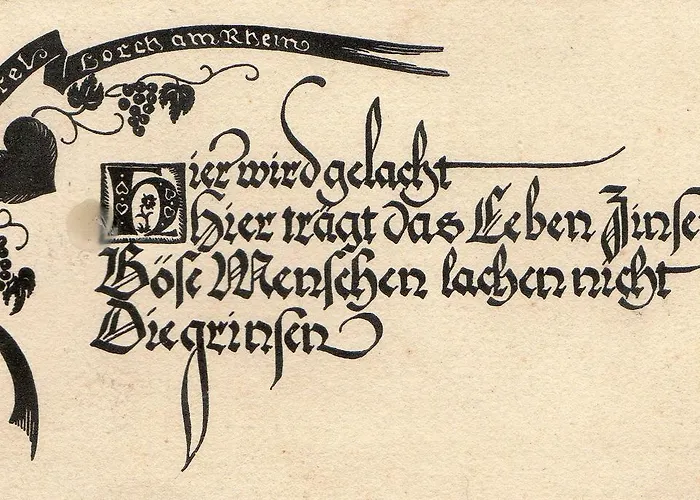 Lorch am Rhein
Hier wird gelacht
Hier trägt das Leben Zinse
Böse Menschen lachen nicht
Die grinsen